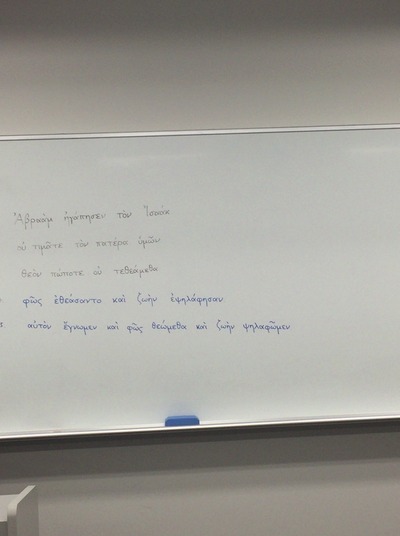 Ἀβραάμ ἠγάπησεν τὸν Ἰσαάκ
οὐ τιμᾶτε τὸν πατέρα ὑμῶν
θεὸν πώποτε οὐ τεθεάμεθα
φῶς ἐθεάσαντο καὶ ζωὴν ἐψηλάφησαν
αὐτὸν ἔγνωμεν καὶ φῶς θεώμεθα καὶ ζωὴν ψηλαφῶμεν